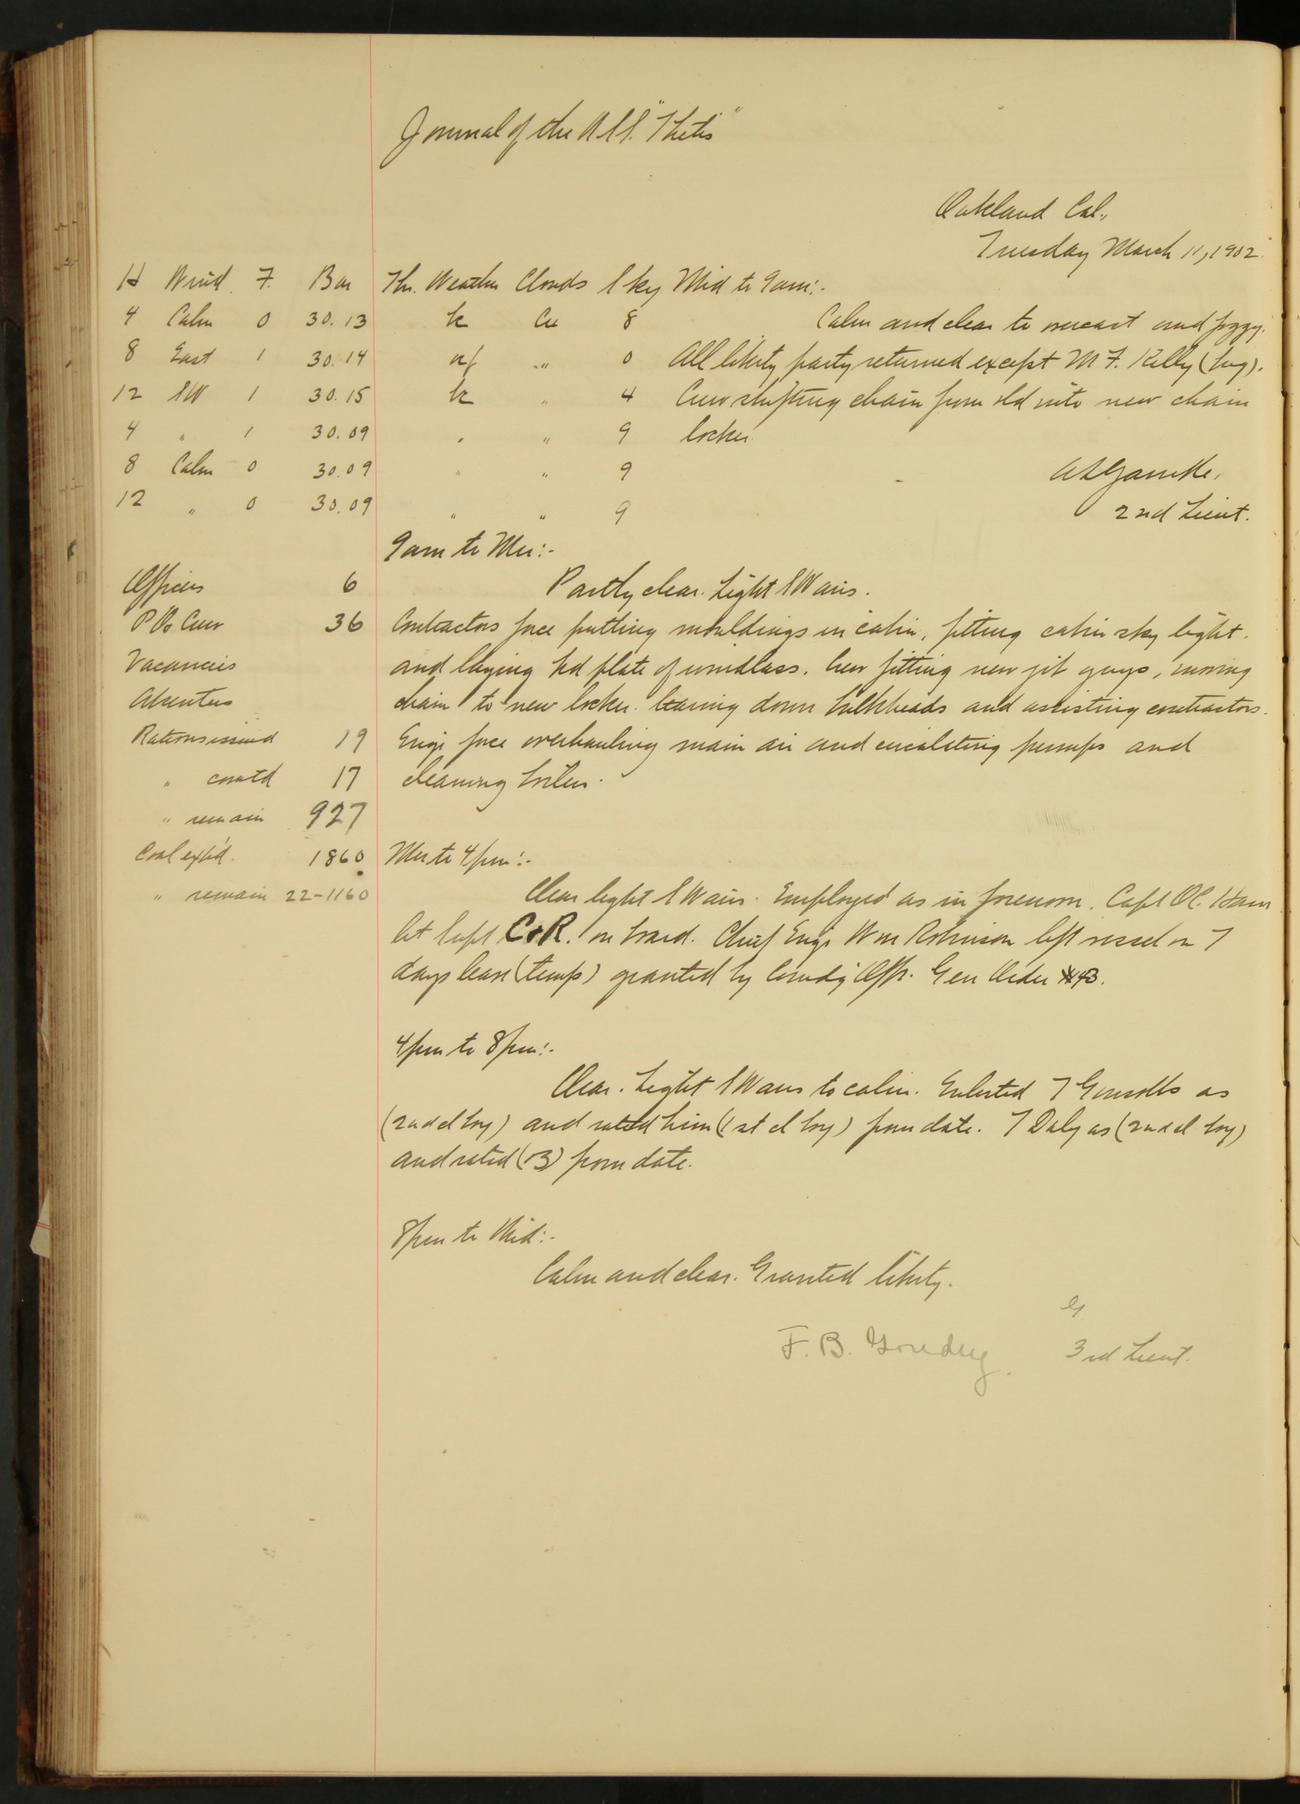 Journal of the R.S.S. "Thetis"
Oakland Cal.,
Tuesday March 11, 1902.
H Wind F. Bar Thr. Weather Clouds Sky Mid to 9am:-
4 Calm 0 30.13 k Cu 8 Calm and clear to overcast and foggy.
8 East 1 30.14 of " 0 All liberty party returned except M F. Kelly (boy).
12 SW 1 30.15 k " 4 Crew shifting chain from old into new chain
4 " 1 30.09 " " 9 locker.
8 Calm 0 30.09 " " 9
2nd Lieut.
12 " 0 30.09 " " 9
9am to Mer:-
Officers 6 Partly clear. Light SW airs.
P.O. Crew 36 Contractors force putting mouldings in cabin, fitting cabin sky light.
Vacancies and laying bed plate of windlass. Crew fitting new jib guys, moving
Absentees chain to new locker. tearing down bulkheads and assisting contractors.
Rations issued 19 Engr force overhauling main air and circulating pumps and
" comtd 17 cleaning boiler.
" remain 927
Coal exp'd. 1860 Mer to 4pm:-
" remain 22-1160 Clear light SW airs. Employed as in forenoon. Capt O.C. Ham
let left C&R. on board. Chief Engr Wm Robinson left vessel on 7
days leave (temp) granted by Comdg Offr. Gen Order #43.
4pm to 8pm:-
Clear. Light SW airs to calm. Enlisted T as
(2nd cl boy) and rated him (1st cl boy) from date. T Daly as (2nd cl boy)
and rated (B) from date.
8pm to Mid:-
Calm and clear. Granted liberty.
F. B. Goudey
3rd Lieut.